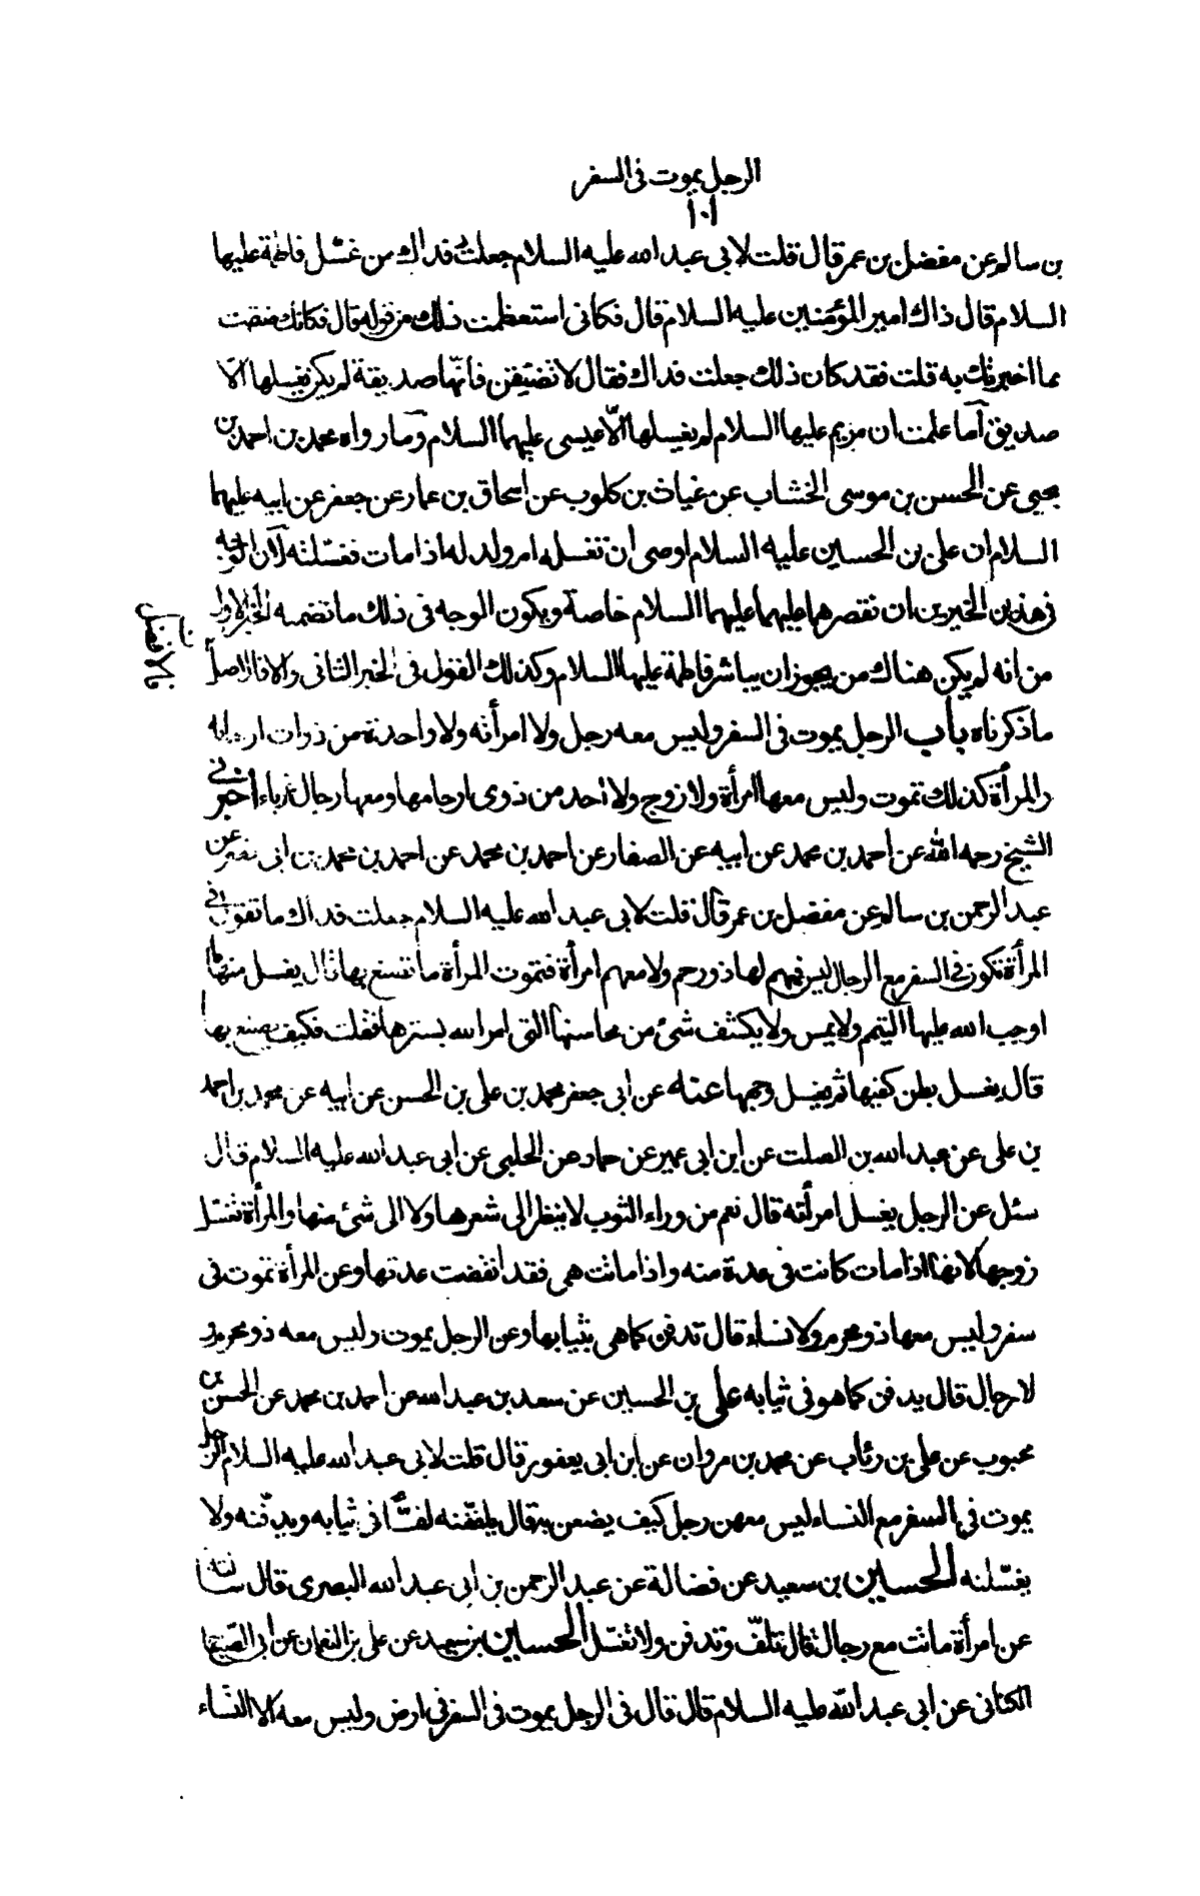 الرجل يموت فى السفر
١٠١
بن سالم عن مفضل بن عمر قال قلت لابى عبد الله عليه السلام جعلت فداك من غسّل فاطمة عليها
السلام قال ذاك امير المؤمنين عليه السلام قال فكانى استعظمت ذلك من قوله قال فكانك ضقت
مما اخبرتك به قلت فقد كان ذلك جعلت فداك فقال لا تضيقن فانّها صديقة لم يكن يغسلها الّا
صديق آما علمت ان مريم عليها السلام لم يغسلها الّا عيسى عليهما السلام ومآ رواه محمد بن احمد بن
يحيى عن الحسن بن موسى الخشاب عن غياث بن كلوب عن اسحاق بن عمار عن جعفر عن ابيه عليهما
السلام ان على بن الحسين عليه السلام اوصى ان تغسله ام ولد له اذا مات فغسّلته لآن الوجه
فى هذين الخبرين ان نقصرهما عليهما عليهما السلام خاصة ويكون الوجه فى ذلك ما تضمنه الخبر الاول
من انه لم يكن هناك من يجوز ان يباشر فاطمة عليها السلام وكذلك القول فى الخبر الثانى والا فالاصل
ما ذكرناه باب الرجل يموت فى السفر وليس معه رجل ولا امرأته ولا واحدة من ذوات ارحامه
والمرأة كذلك تموت وليس معها امرأة ولا زوج ولا احد من ذوى ارحامها ومعها رجال غرباء اخبرنى
الشيخ رحمه الله عن احمد بن محمد عن ابيه عن الصفار عن احمد بن محمد عن احمد بن محمد بن ابى نصر عن
عبد الرحمن بن سالم عن مفضل بن عمر قال قلت لابى عبد الله عليه السلام جعلت فداك ما تقول فى
المرأة تكون فى السفر مع الرجال ليس فيهم لها ذو رحم ولا معهم امرأة فتموت المرأة ما تصنع بها قال يغسل منها ما
اوجب الله عليها التيمم ولا يمس ولا يكشف شئ من محاسنها التى امر الله بسترها فقلت فكيف يصنع بها
قال يغسل بطن كفيها ثم يغسل وجهها عنه عن ابى جعفر محمد بن على بن الحسن عن ابيه عن محمد بن احمد
بن على عن عبد الله بن الصلت عن ابن ابى عمير عن حماد عن الحلبى عن ابى عبد الله عليه السلام قال
سئل عن الرجل يغسل امرأته قال نعم من وراء الثوب لا ينظر الى شعرها ولا الى شئ منها والمرأة تغسّل
زوجها لانها اذا مات كانت فى عدة منه واذا ماتت هى فقد انقضت عدتها وعن المرأة تموت فى
سفر وليس معها ذو محرم ولا نساء قال تدفن كما هى بثيابها وعن الرجل يموت وليس معه ذو محرم و
لا رجال قال يدفن كما هو فى ثيابه على بن الحسين عن سعد بن عبد الله عن احمد بن محمد عن الحسن بن
محبوب عن على بن رئاب عن محمد بن مروان عن ابن ابى يعفور قال قلت لابى عبد الله عليه السلام الرجل
يموت فى السفر مع النساء ليس معهن رجل كيف يضعن به قال يلففنه لفّاً فى ثيابه ويدفنه ولا
يغسّلنه الحسين بن سعيد عن فضالة عن عبد الرحمن بن ابى عبد الله البصرى قال سالته
عن امرأة ماتت مع رجال قال تلفّ وتدفن ولا تغسّل الحسين بن سعيد عن على بن النعمان عن ابى الصباح
الكنانى عن ابى عبد الله عليه السلام قال قال فى الرجل يموت فى السفر فى ارض وليس معه الا النساء